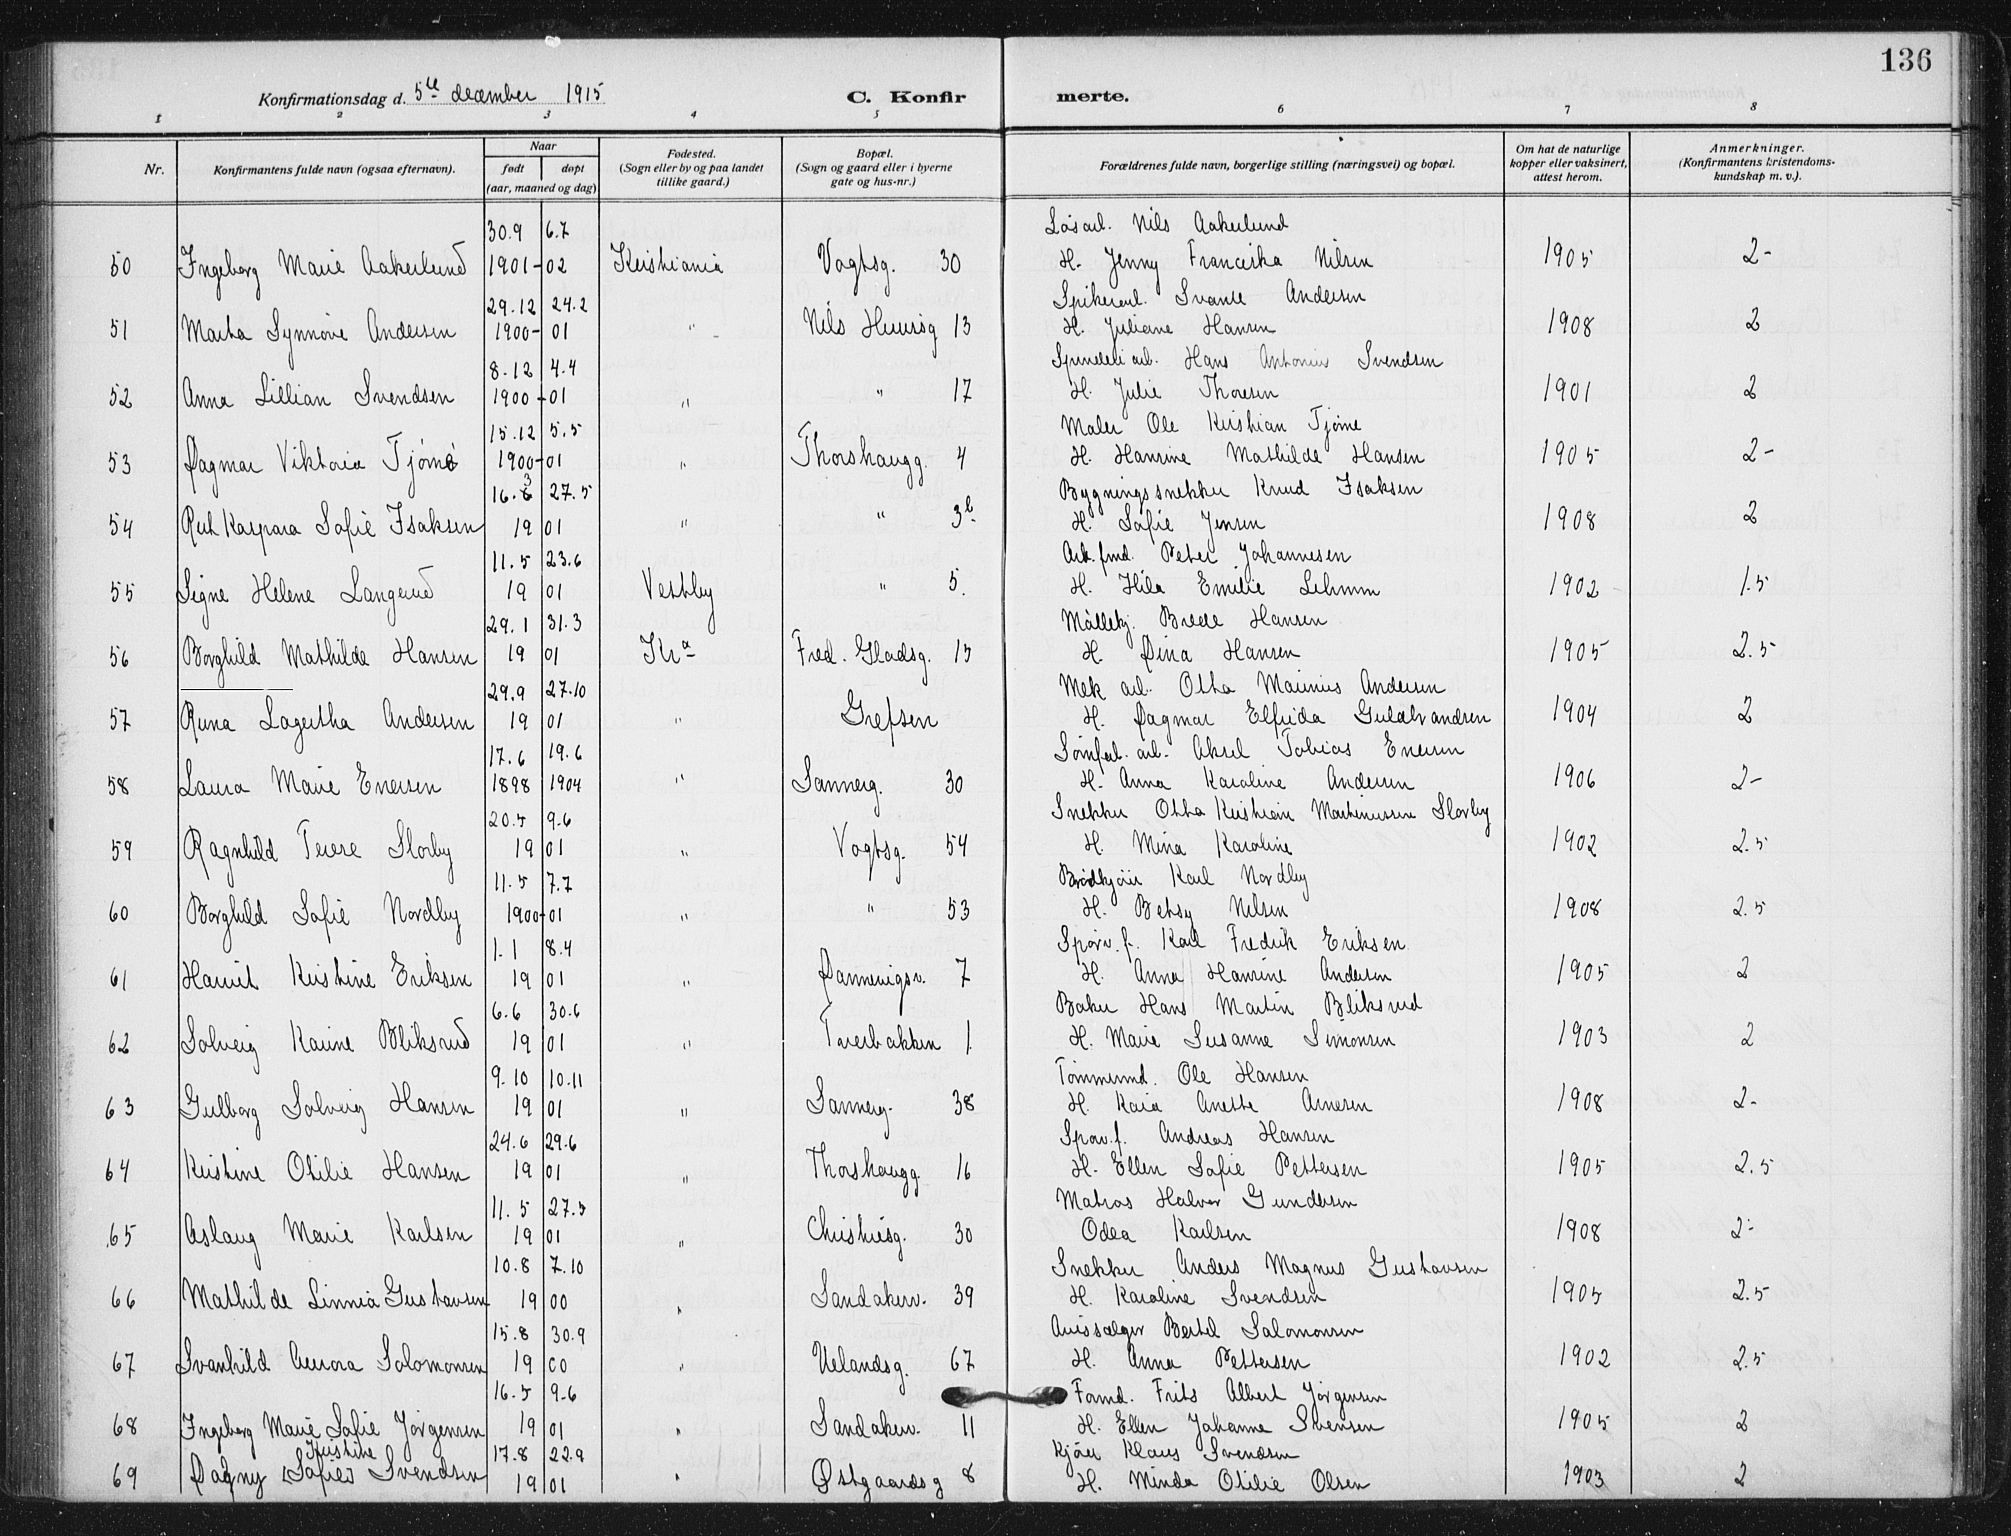 136
Konfirmationsdag d. 5te december 1915 C. Konfirmerte.
1 2 3 4 5 6 7 8
Nr. Konfirmantens fulde navn (ogsaa efternavn). Naar født døpt (aar, maaned og dag) Fødested. (Sogn eller by og paa landet tillike gaard.) Bopæl. (Sogn og gaard eller i byerne gate og hus-nr.) Forældrenes fulde navn, borgerlige stilling (næringsvei) og bopæl. Om hat de naturlige kopper eller vaksinert, attest herom. Anmerkninger. (Konfirmantens kristendoms-kundskap m. v.).
30.9 6.7 Løsarb. Nils Aakerlund
50 Ingeborg Marie Aakerlund 1901-02 Kristiania Vogtsg. 30 H. Jenny Franciska Nilsen 1905 2-
29.12 24.2 Spikerarb. Svante Andersen
51 Marta Synnøve Andersen 1900-01 " Nils Huusg 13 H. Juliane Hansen 1908 2
8.12 4.4 Spinderiarb. Hans Antonius Svendsen
52 Anna Lillian Svendsen 1900-01 " " 17 H. Julie Thoresen 1901 2
15.12 5.5 Maler Ole Kristian Tjøme
53 Dagmar Viktoria Tjøme 1900-01 " Thorshaugg. 4 H. Hansine Mathilde Hansen 1905 2-
16.3 27.5 Bygningssnekker Knud Isaksen
54 Rut Kaspara Sofie Isaksen 1901 " " 3b. H. Sofie Jensen 1908 2
11.5 23.6 Arb.fmd. Peter Johannesen
55 Signe Helene Langerud 1901 Vestby " 5. H. Hilda Emilie 1902 1.5
29.1 31.3 Møllekj. Brede Hansen
56 Borghild Mathilde Hansen 1901 Kra Fred. Gladsg. 15 H. Dina Hansen 1905 2.5
29.9 27.10 Mek arb. Otto Marinius Andersen
57 Runa Lagertha Andersen 1901 " Grefsen H. Dagmar Elfrida Guldbrandsen 1904 2
17.6 19.6 Sømfab. arb. Aksel Tobias Enersen
58 Laura Marie Enersen 1898 1904 " Sannerg. 30 H. Anna Karoline Andersen 1906 2-
20.5 9.6 Snekker Otto Kristian Martinussen Slorby
59 Ragnhild Terese Slorby 1901 " Vogtsg. 54 H. Mina Karoline 1902 2.5
11.5 7.7 Brødkjører Karl Nordby
60 Borghild Sofie Nordby 1900-01 " " 53 H. Betsy Nilsen 1908 2.5
1.1 8.4 Sporv.f. Karl Fredrik Eriksen
61 Harriet Kristine Eriksen 1901 " Dannevigsv. 7 H. Anna Hansine Andersen 1905 2
6.6 30.6 Baker Hans Martin Bliksrud
62 Solveig Karine Bliksrud 1901 " Tverbakken 1 H. Marie Susanne Simonsen 1903 2
9.10 10.11 Tømmermd. Ole Hansen
63 Gulborg Solveig Hansen 1901 " Sannerg. 38 H. Kaia Anette Arnesen 1908 2-
24.6 29.6 Sporv.f. Andreas Hansen
64 Kristine Otilie Hansen 1901 " Thorshaugg. 16 H. Ellen Sofie Pettersen 1905 2.5
11.5 27.5 Matros Halvor Gundersen
65 Aslaug Marie Karlsen 1901 " Christiesg. 30 Odea Karlsen 1908 2-
10.8 7.10 Snekker Anders Magnus Gustavsen
66 Mathilde Linnea Gustavsen 1900 " Sandakerv. 39 H. Karoline Svendsen 1905 2.5
15.8 30.9 Avissælger Bertel Salomonsen
67 Svanhild Aurora Salomonsen 1900 " Uelandsg. 67 H. Anna Pettersen 1902 2.5
16.5 9.6 Formd. Frits Albert Jørgensen
68 Ingeborg Marie Sofie Jørgensen 1901 " Sandakerv. 11 H. Ellen Johanne Svensen 1905 2
Kristine 17.8 22.9 Kjører Klaus Svendsen
69 Dagny Sofie Svendsen 1901 " Østgaardsg 8 H. Minda Otilie Olsen 1903 2